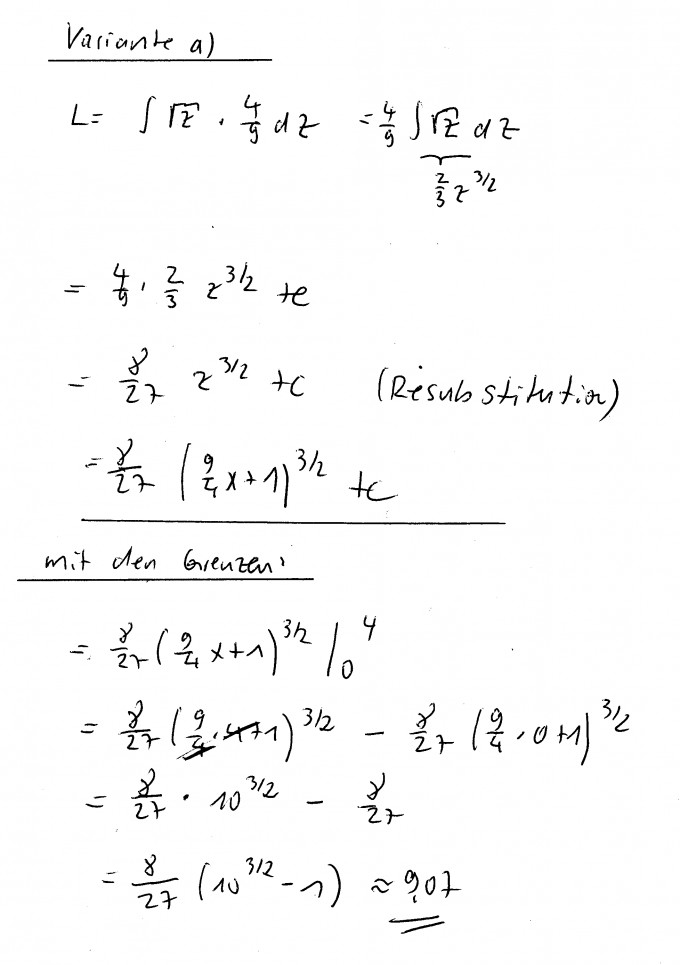 Variante a)
L= ∫ √z · 4/9 dz = 4/9 ∫ √z dz
2/3 z^3/2
= 4/9 · 2/3 z^3/2 +c
= 8/27 z^3/2 +c (Resubstitution)
= 8/27 (9/4 x+1)^3/2 +c
mit den Grenzen:
= 8/27 (9/4 x+1)^3/2 |_0^4
= 8/27 (9/4 · 4+1)^3/2 − 8/27 (9/4 · 0+1)^3/2
= 8/27 · 10^3/2 − 8/27
= 8/27 (10^3/2 − 1) ≈ 9,07